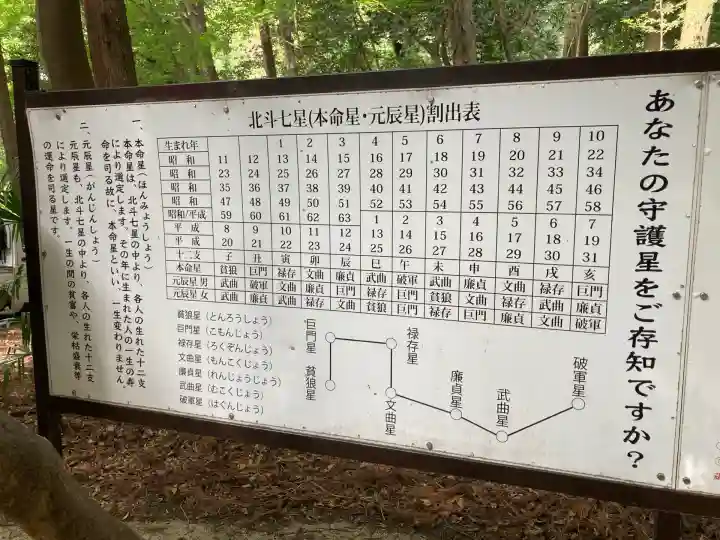 あなたの守護星をご存知ですか？
北斗七星(本命星・元辰星)割出表
生まれ年 1 2 3 4 5 6 7 8 9 10
昭和 11 12 13 14 15 16 17 18 19 20 21 22
昭和 23 24 25 26 27 28 29 30 31 32 33 34
昭和 35 36 37 38 39 40 41 42 43 44 45 46
昭和 47 48 49 50 51 52 53 54 55 56 57 58
昭和/平成 59 60 61 62 63 1 2 3 4 5 6 7
平成 8 9 10 11 12 13 14 15 16 17 18 19
平成 20 21 22 23 24 25 26 27 28 29 30 31
十二支 子 丑 寅 卯 辰 巳 午 未 申 酉 戌 亥
本命星 貪狼 巨門 禄存 文曲 廉貞 武曲 破軍 武曲 廉貞 文曲 禄存 巨門
元辰星 男 武曲 破軍 文曲 廉貞 巨門 禄存 巨門 貪狼 文曲 禄存 武曲 廉貞
元辰星 女 武曲 廉貞 武曲 禄存 文曲 貪狼 巨門 禄存 巨門 廉貞 文曲 破軍
一、本命星(ほんみょうしょう)
本命星は、北斗七星の中より、各人の生れた十二支
により選定します。その年に生まれた人の一生の寿
命を司る故に、本命星といい、一生変わりません。
二、元辰星(がんじんしょう)
元辰星も、北斗七星の中より、各人の生れた十二支
により選定します。一生の間の貧富や、栄枯盛衰等
の運命を司る星です。
貪狼星(とんろうしょう)
巨門星(こもんじょう)
禄存星(ろくぞんじょう)
文曲星(もんこくじょう)
廉貞星(れんじょうじょう)
武曲星(むこくじょう)
破軍星(はぐんじょう)
巨門星
貪狼星
禄存星
文曲星
廉貞星
武曲星
破軍星